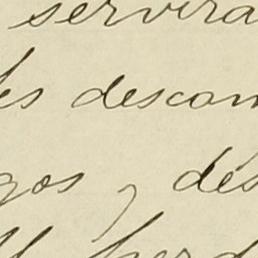 servira
les descan
gos y des